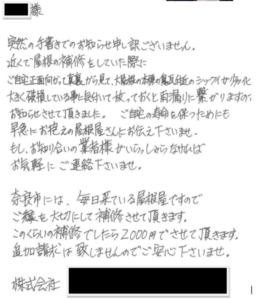 様
突然の手書きでのお知らせ申し訳ございません。
近くで屋根の補修をしていた際に
ご自宅正面向かって真裏から見て、大屋根の
大きく破損している事に気付いて放っておくと雨漏りに繋がりますので
お知らせさせて頂きました。 ご自宅の寿命を保つためにも
早急にお抱えの屋根屋さんにお伝え下さいませ。
もし、お知り合いの業者様がいらっしゃらなければ
お気軽にご連絡下さいませ。
奈良市には、毎日来ている屋根屋ですので
ご縁を大切にして補修させて頂きます。
このくらいの補修でしたら2000円でさせて頂きます。
追加請求は致しませんのでご安心下さいませ。
株式会社